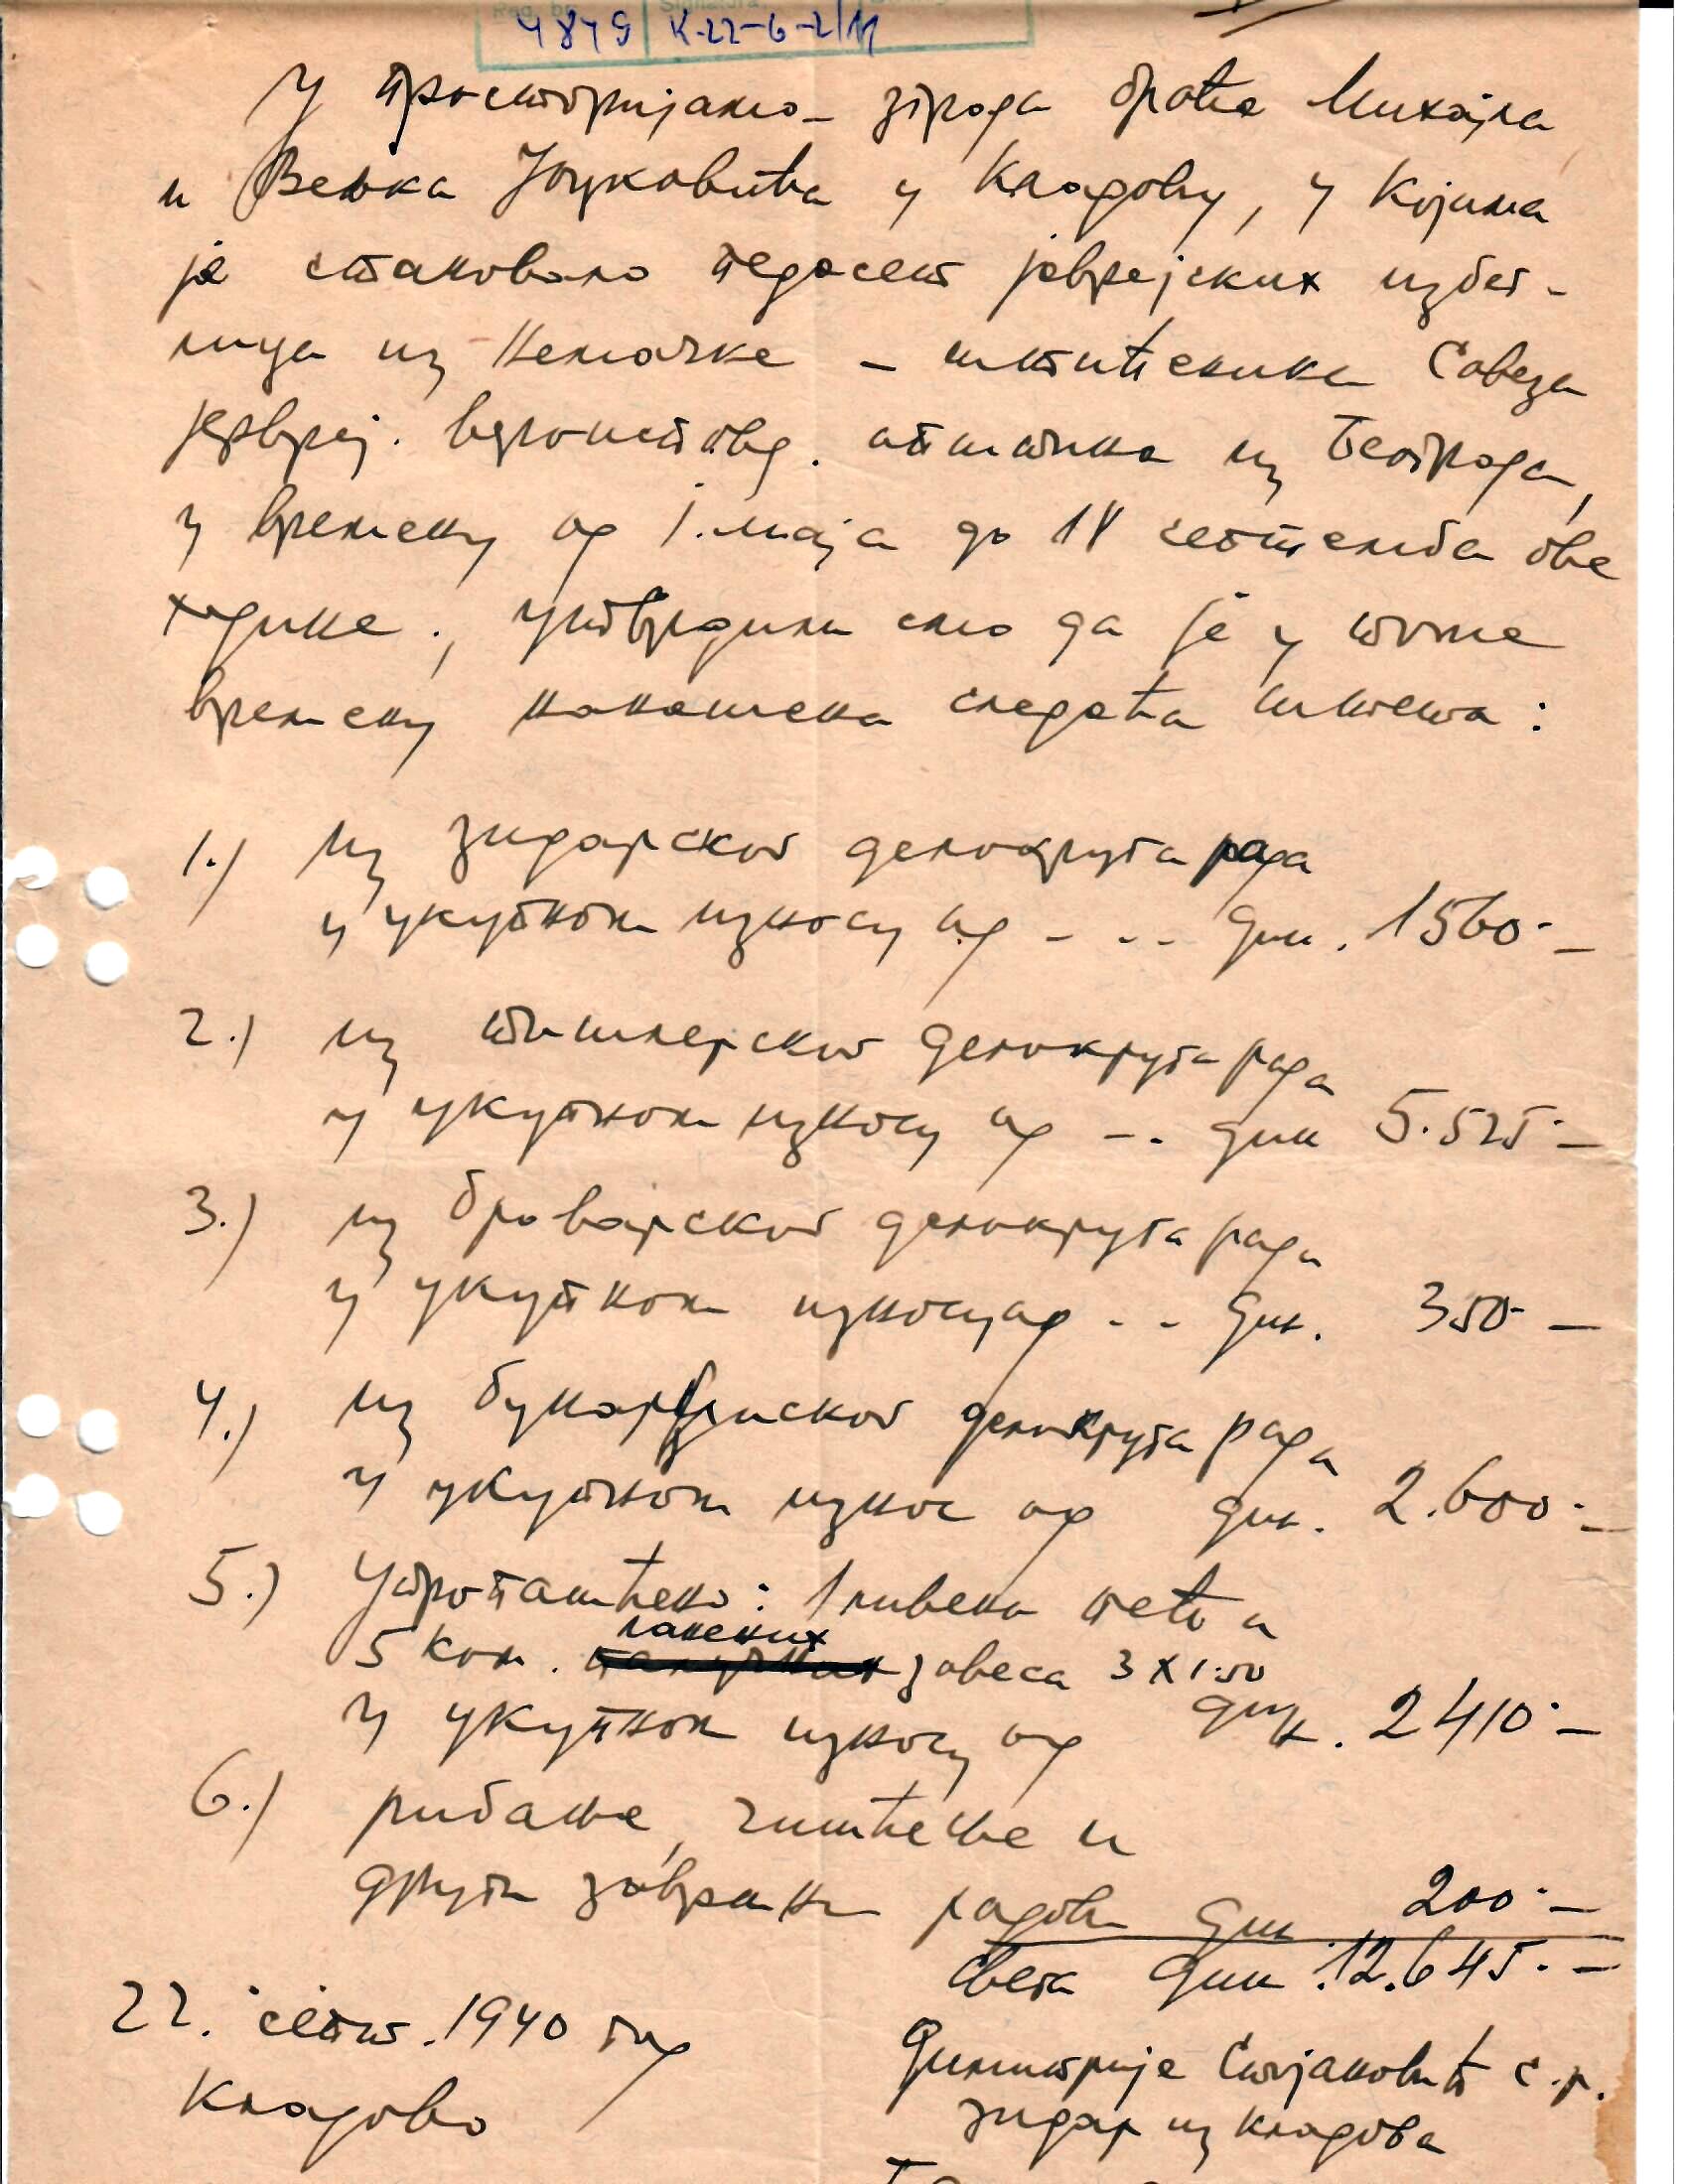 4849 K-22-6-2/11
У просторијама зграда браће Михајла
и Вељка Јоцковића у Кладову, у којима
је становало педесет јеврејских избег-
лица из Немачке – штићеника Савеза
јеврej. вероиспов. општина из Београда,
у времену од 1. маја до 18 септемба ове
године, утврдили смо да је у томе
времену нанешена следећа штета:
1.) Из зидарског делокруга рада
у укупном износу од - - - дин. 1560.–
2.) из тишлерског делокруга рада
у укупном износу од - - дин 5.525.–
3.) из браварског делокруга рада
у укупном износу од - - дин. 350 –
4.) из бунарџиског делокруга рада
у укупном износ од дин. 2.600.–
5.) Упропашћено: 1 ливена пећ и
ланених
5 ком. завеса 3 x 1.50
у укупном износу од дин. 2410.–
6.) рибање, чишћење и
други завршни радови дин 200.–
Свега дин. 12.645.–
22. септ. 1940 год
Кладово
Димитрије Стојановић с.р.
зидар из Кладова